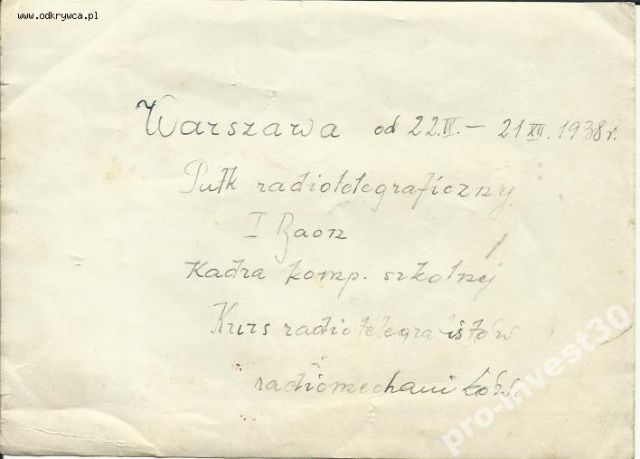 www.odkrywca.pl
Warszawa od 22.IV. – 21 XII. 1938 r.
Pułk radiotelegraficzny
I Baon
Kadra komp. szkolnej
Kurs radiotelegrafistów
radiomechaników.
pro-invest30